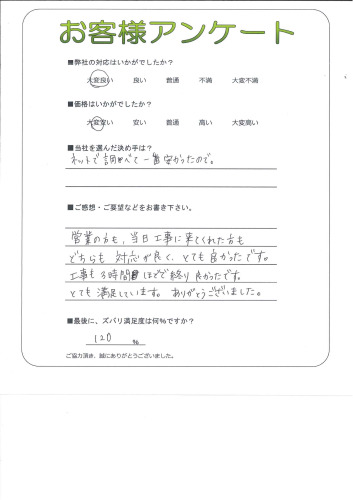 お客様アンケート
■弊社の対応はいかがでしたか？
大変良い 良い 普通 不満 大変不満
■価格はいかがでしたか？
大変安い 安い 普通 高い 大変高い
■当社を選んだ決め手は？
ネットで調べて一番安かったので。
■ご感想・ご要望などをお書き下さい。
営業の方も、当日工事に来てくれた方も
どちらも対応が良く、とても良かったです。
工事も3時間ほどで終り良かったです。
とても満足しています。ありがとうございました。
■最後に、ズバリ満足度は何%ですか？
120 %
ご協力頂き、誠にありがとうございました。